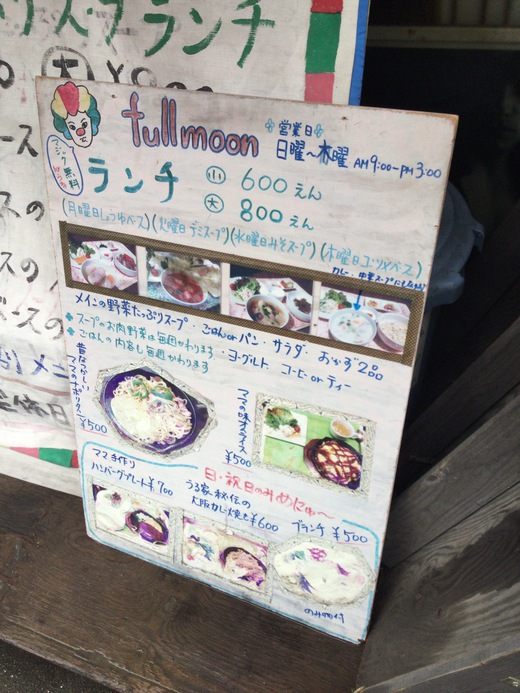 ランチ
fullmoon
営業日
日曜〜木曜 AM9:00-PM3:00
マジック無料
ランチ 小 600えん
大 800えん
(月曜日しょうゆベース)(火曜日デミスープ)(水曜日みそスープ)(木曜日コンソメベース)
カレー・中華スープにもなるよ
メインの野菜たっぷりスープ・ごはんorパン・サラダ・おかず2品
スープのお肉野菜は毎週かわります・ヨーグルト コーヒーorティー
ごはんの内容も毎週かわります
昔なつかしい
ママのナポリタン
¥500
ママの味オムライス
¥500
日・祝日のみめにゅ〜
ママ手作り
ハンバーグプレート¥700
うる家秘伝の
大阪カレー焼そば¥600
ブランチ ¥500
のみもの付